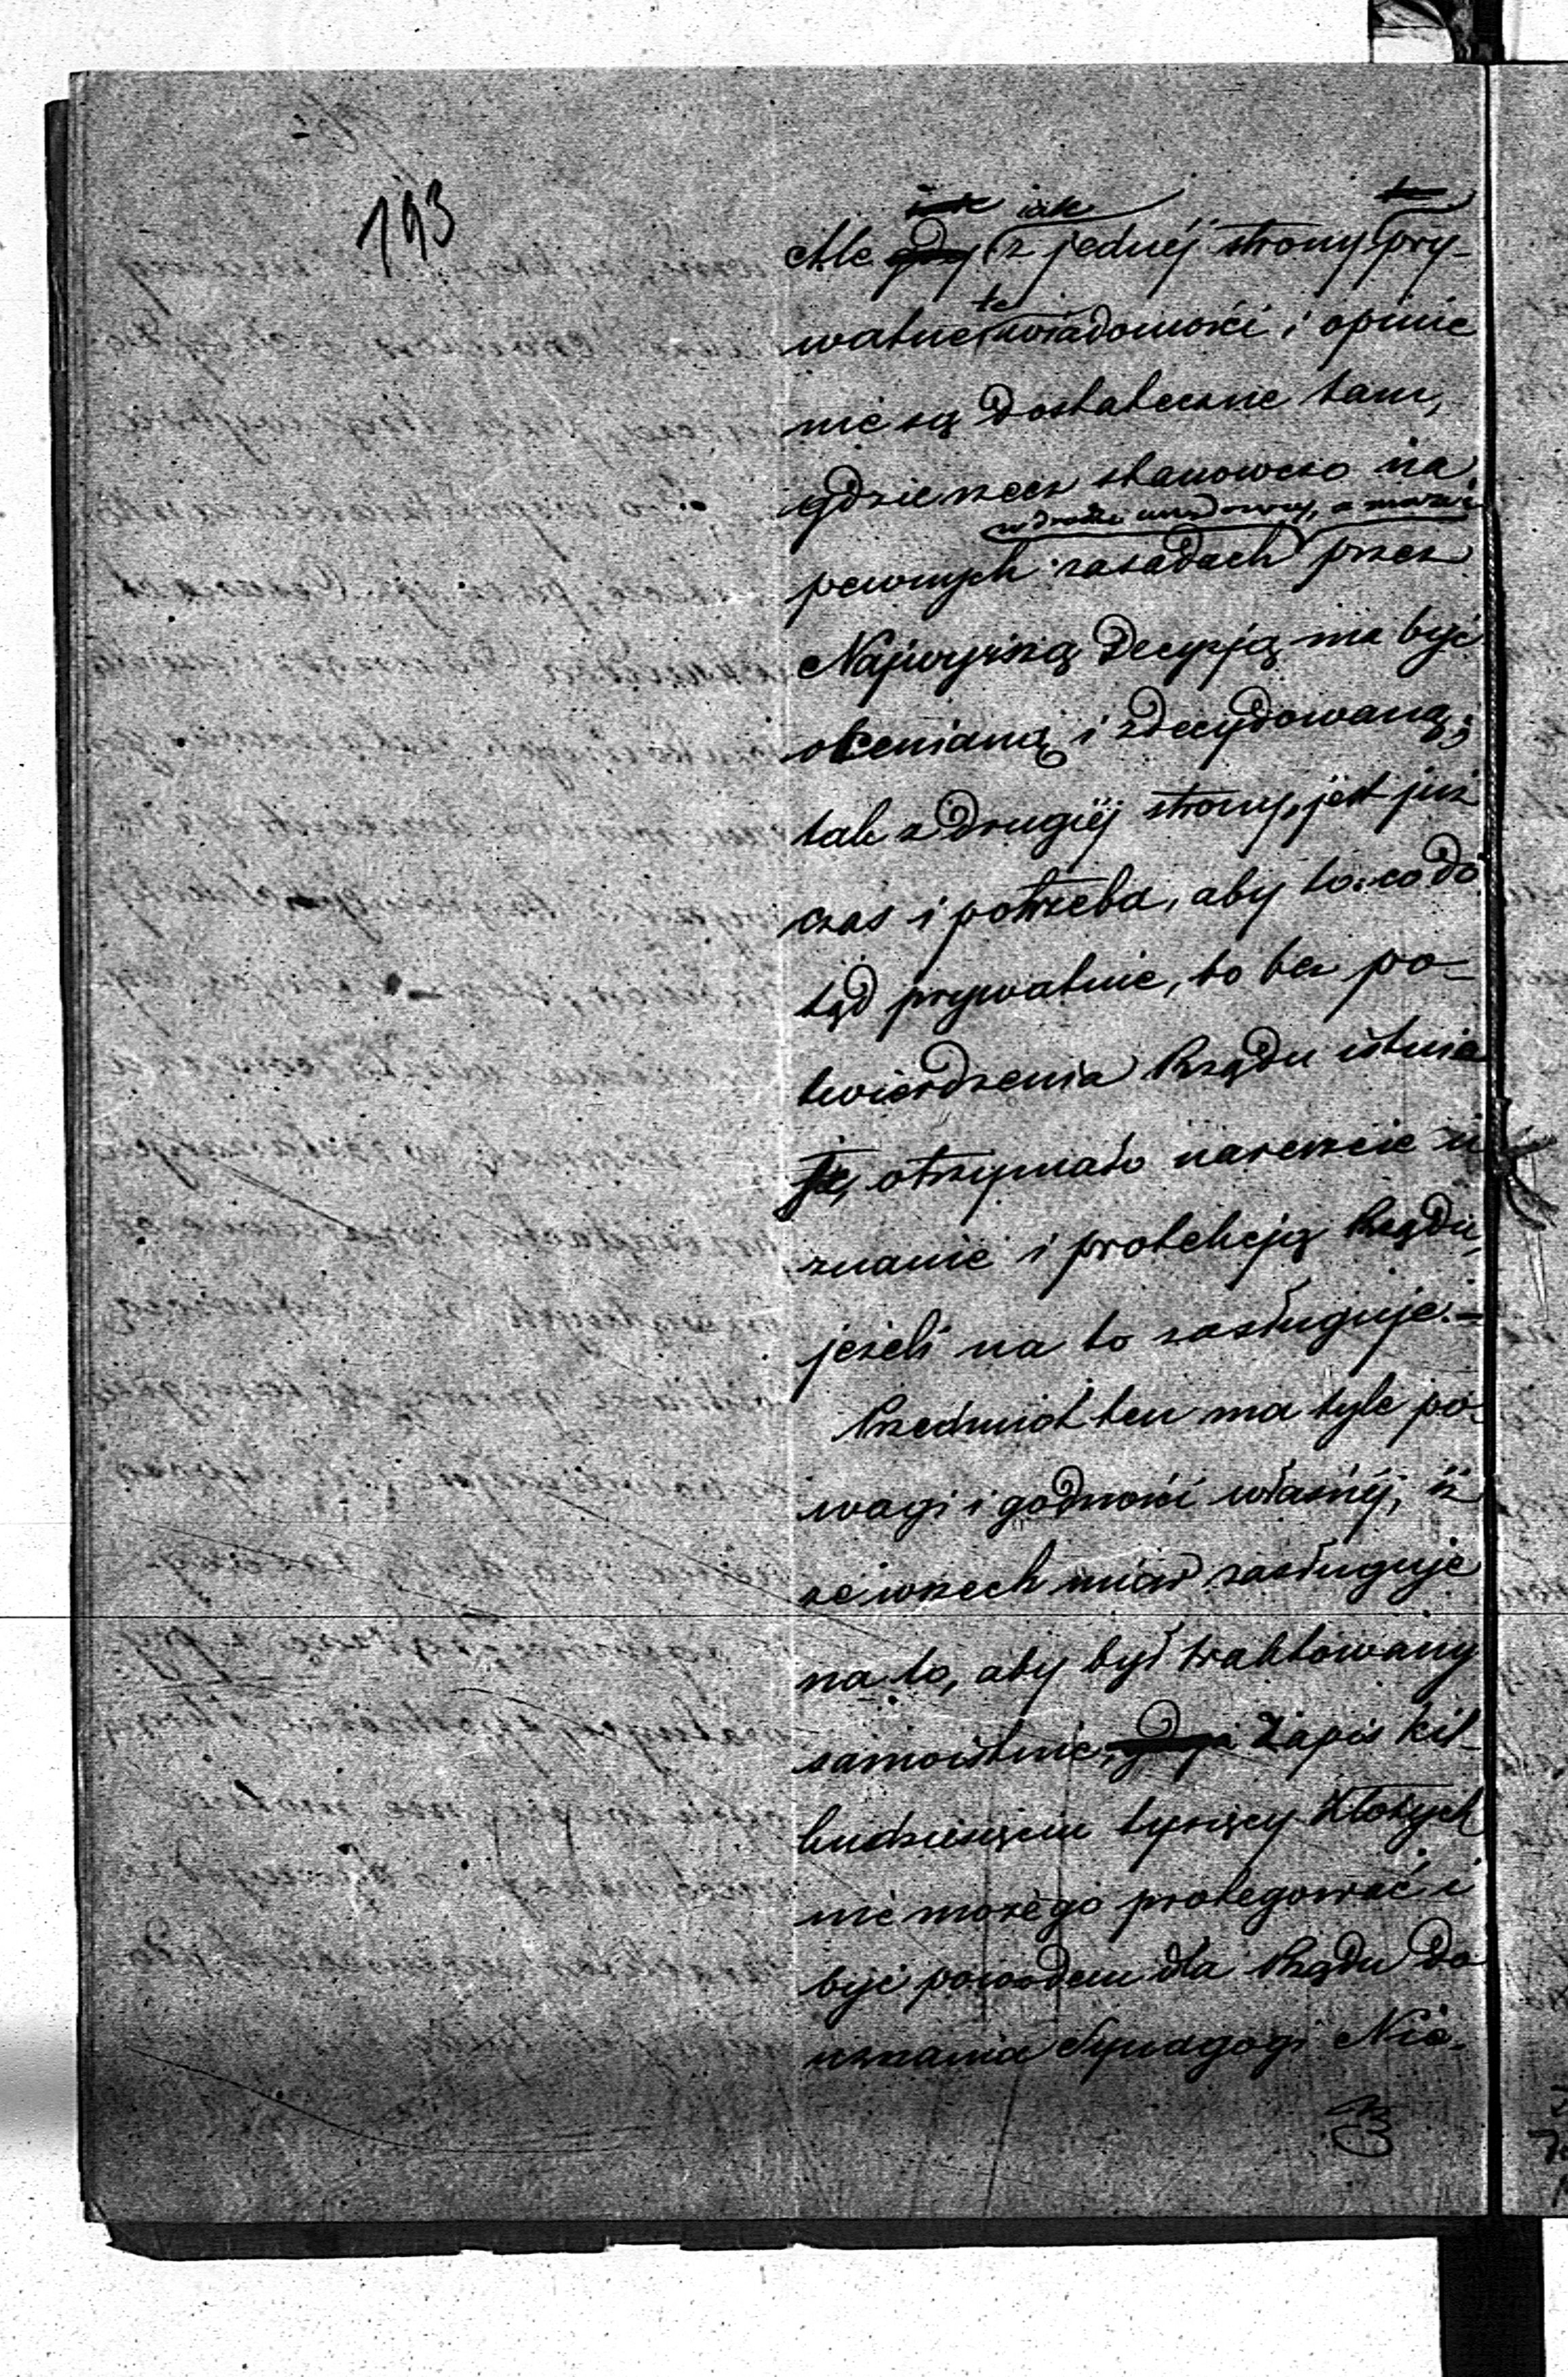 193
iak
Ale gdy z jednéj strony pry-
te
watne wiadomości i opinie
nie są dostateczne tam,
gdzie rzecz stanowczo na
w drodze urzędowej, a nawet
pewnych zasadach przez
Najwyższą decyzją ma być
ocenianą i zdecydowaną;
tak z drugiéj strony, jest już
czas i potrzeba, aby to co do
tąd prywatnie, to bez po-
twierdzenia Rządu istnia
je, otrzymało nareszcie u
znanie i protekcją Rządu,
jeżeli na to zasługuje.-
Przedmiot ten ma tyle po-
wagi i godności własnéj, iż
ze wszech miar zasługuje
na to, aby był traktowany
samoistnie, Zapis kil-
kudziesięciu tysięcy Złotych
nie może go protegować i
być powodem dla Rządu do
uznania Synagogi Nie-